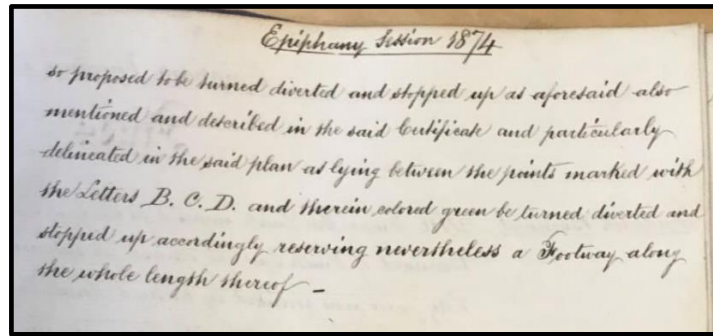 Epiphany Session 1874
so proposed to be turned diverted and stopped up as aforesaid also
mentioned and described in the said Certificate and particularly
delineated in the said plan as lying between the points marked with
the Letters B. C. D. and therein colored green be turned diverted and
stopped up accordingly reserving nevertheless a Footway along
the whole length thereof –